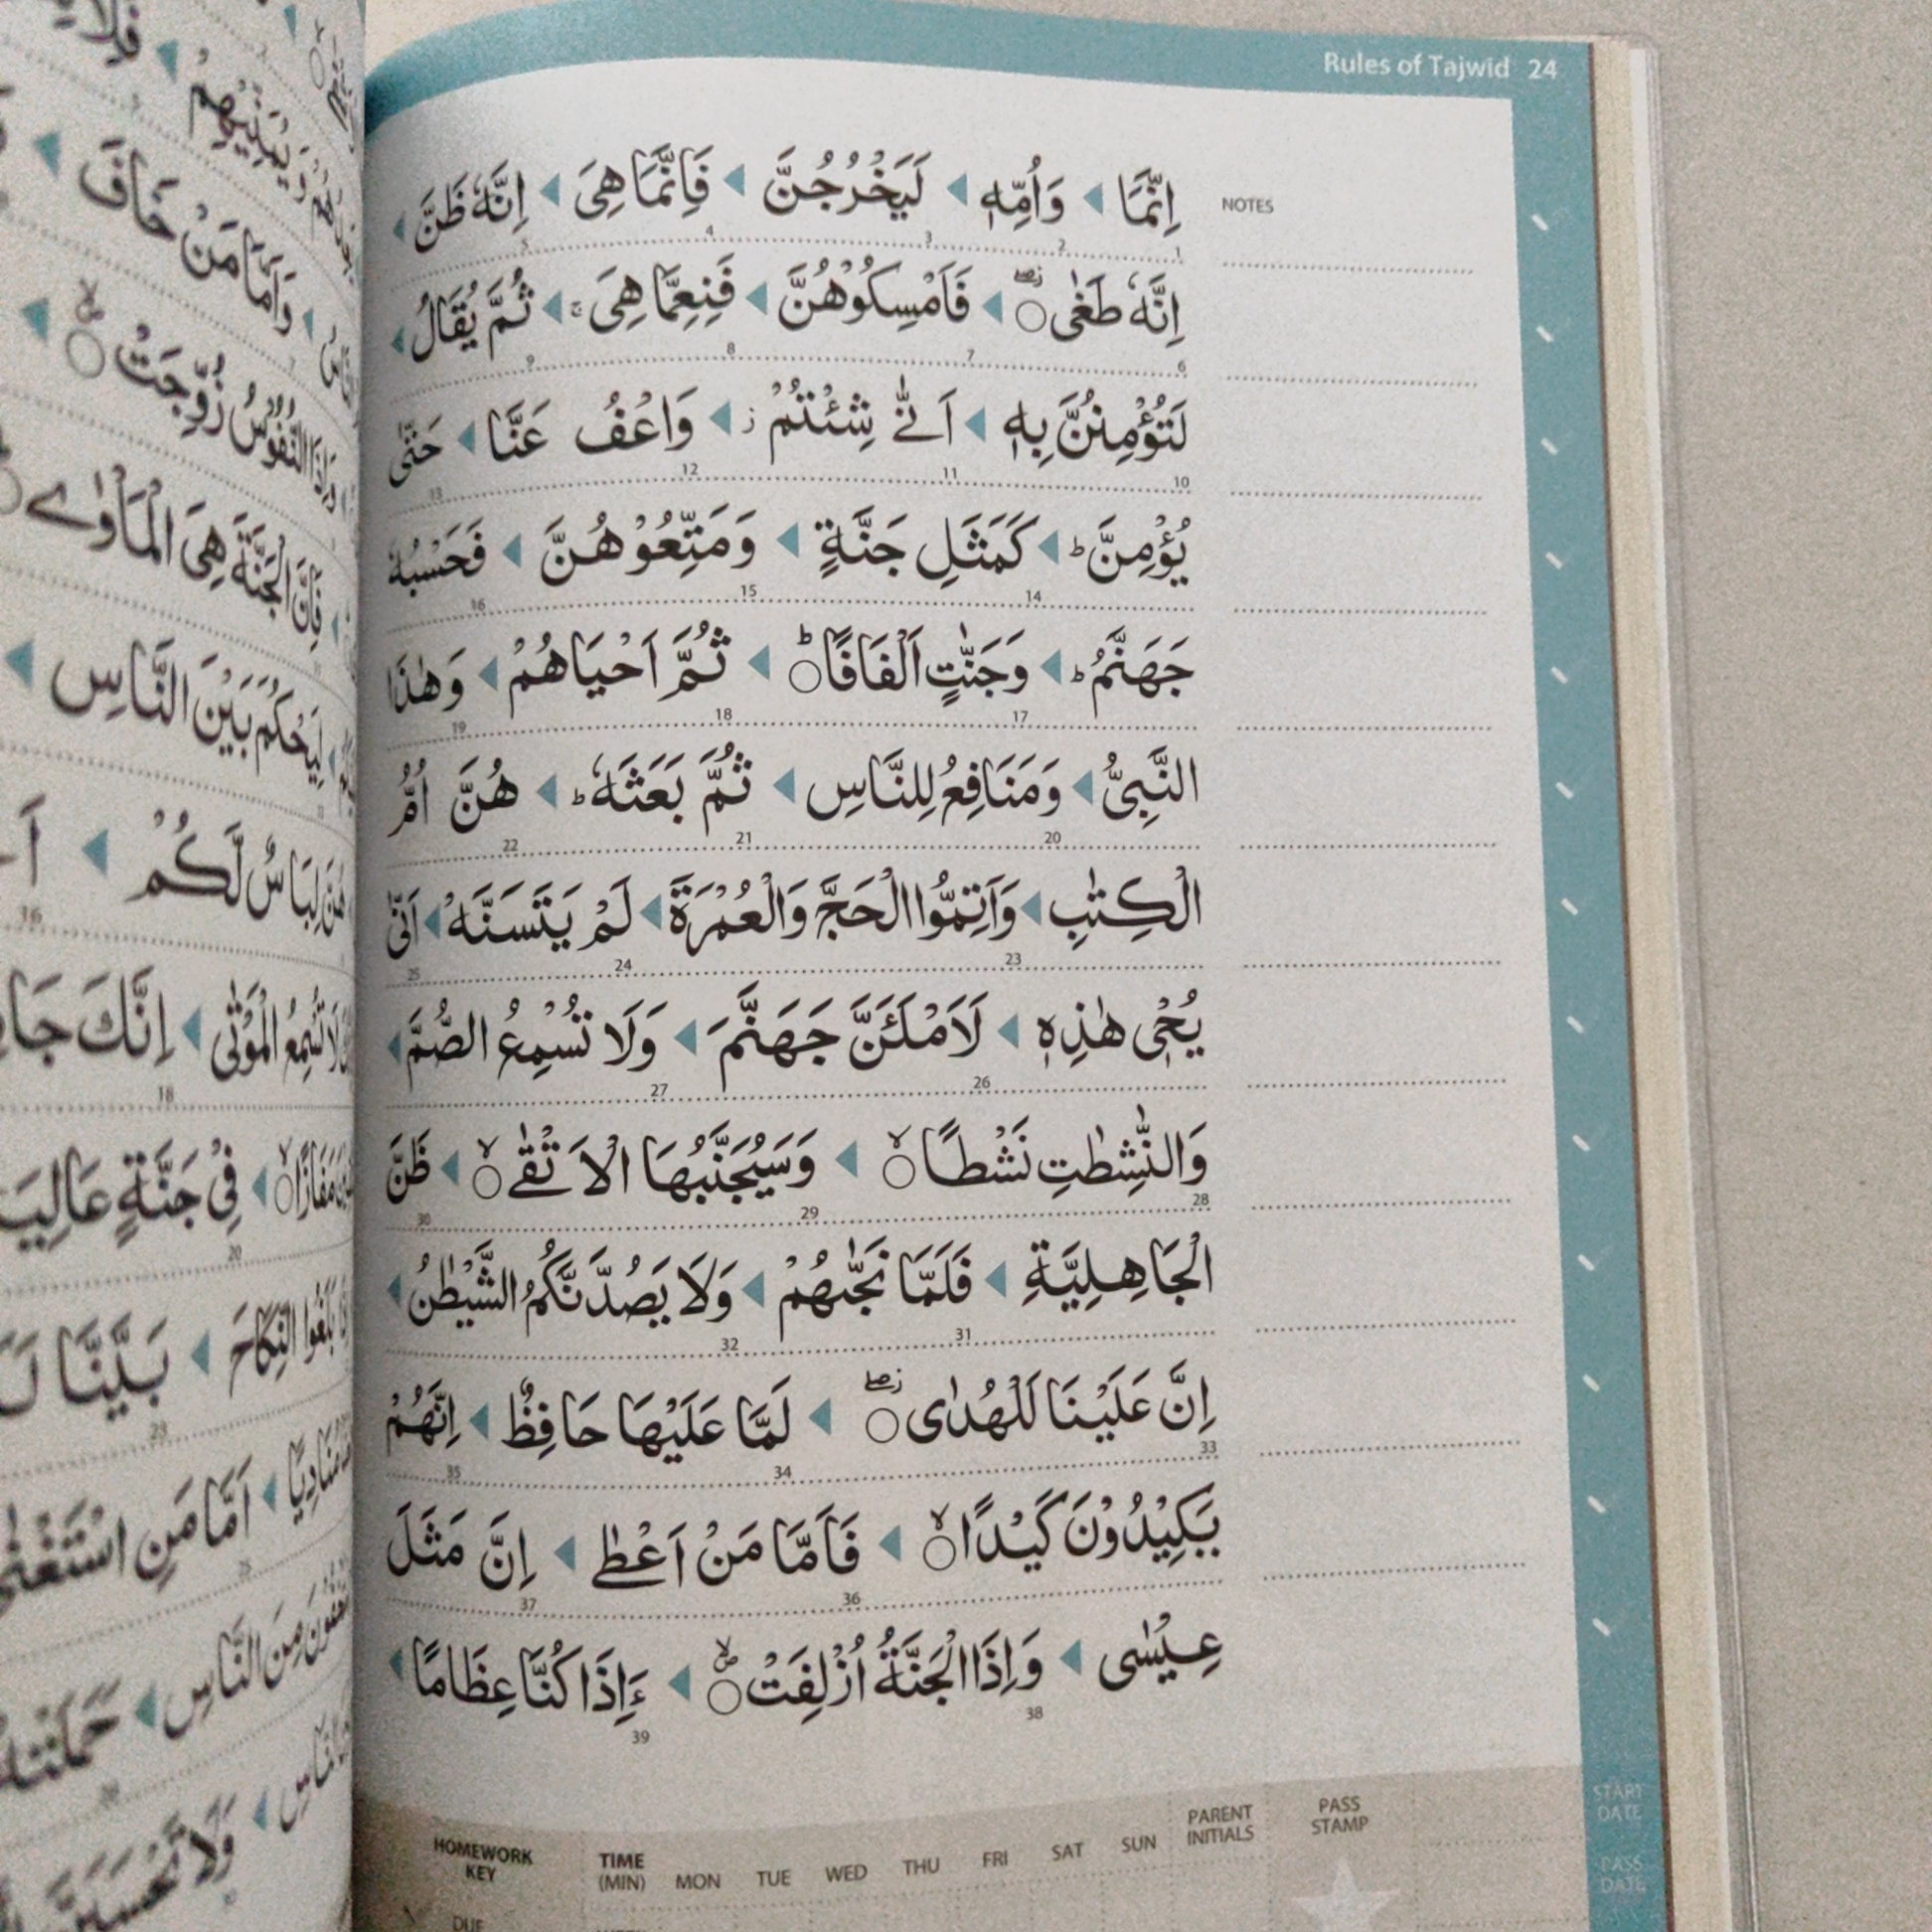 Rules of Tajwid 24
NOTES
اِنَّمَا ◀ وَاُمِّهٖ ◀ لَيَخْرُجُنَّ ◀ فَاِنَّمَا هِىَ ◀ اِنَّهٗ ظَنَّ ◀
1 2 3 4 5
اِنَّهٗ طَغٰى ◀ فَاَمْسِكُوْهُنَّ ◀ فَنِعِمَّا هِىَ ۚ ◀ ثُمَّ يُقَالُ ◀
6 7 8 9
لَتُؤْمِنُنَّ بِهٖ ◀ اَنّٰى شِئْتُمْ ز ◀ وَاعْفُ عَنَّا ◀ حَتّٰى
10 11 12 13
يُؤْمِنَّ ط ◀ كَمَثَلِ جَنَّةٍ ◀ وَمَتِّعُوْهُنَّ ◀ فَحَسْبُهٗ
14 15 16
جَهَنَّمُ ط ◀ وَجَنّٰتٍ اَلْفَافًا ط ◀ ثُمَّ اَحْيَاهُمْ ◀ وَهٰذَا
17 18 19
النَّبِىُّ ◀ وَمَنَافِعُ لِلنَّاسِ ◀ ثُمَّ بَعَثَهٗ ط ◀ هُنَّ اُمُّ
20 21 22
الْكِتٰبِ ◀ وَاَتِمُّوا الْحَجَّ وَالْعُمْرَةَ ◀ لَمْ يَتَسَنَّهْ ◀ اَنّٰى
23 24 25
يُحْىٖ هٰذِهِ ◀ لَاَمْلَئَنَّ جَهَنَّمَ ◀ وَلَا تُسْمِعُ الصُّمَّ ◀
26 27
وَالنّٰشِطٰتِ نَشْطًا لا ◀ وَسَيُجَنَّبُهَا الْاَتْقٰى لا ◀ ظَنَّ
28 29 30
الْجَاهِلِيَّةِ ◀ فَلَمَّا نَجّٰهُمْ ◀ وَلَا يَصُدَّنَّكُمُ الشَّيْطٰنُ ◀
31 32
اِنَّ عَلَيْنَا لَلْهُدٰى ◀ لَمَّا عَلَيْهَا حَافِظٌ ◀ اِنَّهُمْ
33 34 35
يَكِيْدُوْنَ كَيْدًا لا ◀ فَاَمَّا مَنْ اَعْطٰى ◀ اِنَّ مَثَلَ
36 37
عِيْسٰى ◀ وَاِذَا الْجَنَّةُ اُزْلِفَتْ ◀ ءَاِذَا كُنَّا عِظَامًا ◀
38 39
HOMEWORK KEY TIME (MIN) MON TUE WED THU FRI SAT SUN PARENT INITIALS PASS STAMP
START DATE
PASS DATE
DUE
وَاَمَّا مَنْ خَافَ
النُّفُوْسُ زُوِّجَتْ
فَاِنَّ الْجَنَّةَ هِىَ الْمَاْوٰى
لِيَحْكُمَ بَيْنَ النَّاسِ
هُنَّ لِبَاسٌ لَّكُمْ
16
18
فِىْ جَنَّةٍ
20
اَمَّا مَنِ اسْتَغْنٰى
مِنَ النَّاسِ